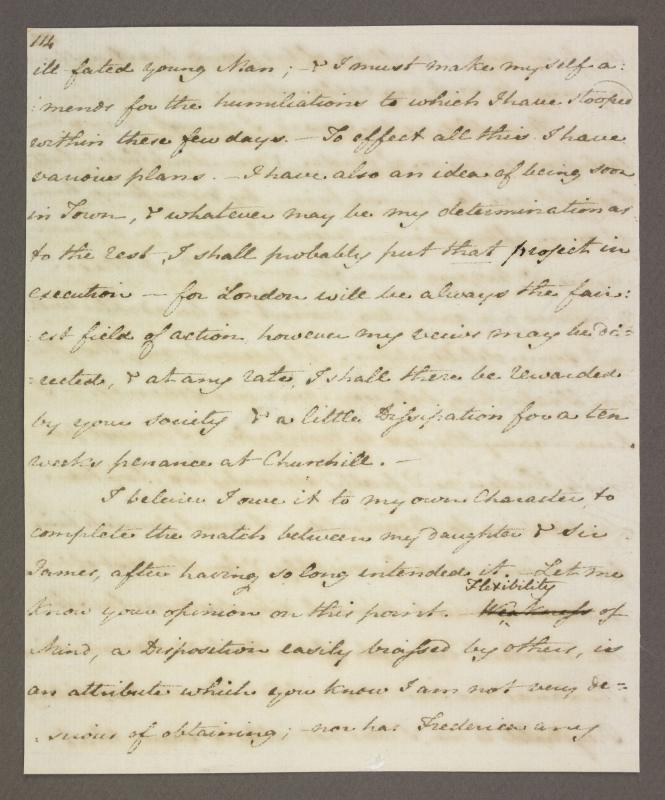 114
ill-fated young Man; - & I must make myself a:
:mends for the humiliations to which I have stooped
within these few days. - To effect all this I have
various plans. - I have also an idea of being soon
in Town, & whatever may be my determination as
to the rest, I shall probably put that project in
execution - for London will be always the fair:
:est field of action, however my veiws may be di-
:rected, & at any rate, I shall there be rewarded
by your society & a little Dissipation for a ten
weeks penance at Churchill. -
I beleive I owe it to my own Character, to
complete the match between my daughter & Sir
James, after having so long intended it. - Let me
Flexibility
know your opinion on this point. - Weakness of
Mind, a Disposition easily biassed by others, is
an attribute which you know I am not very de-
:sirous of obtaining; nor has Frederica any